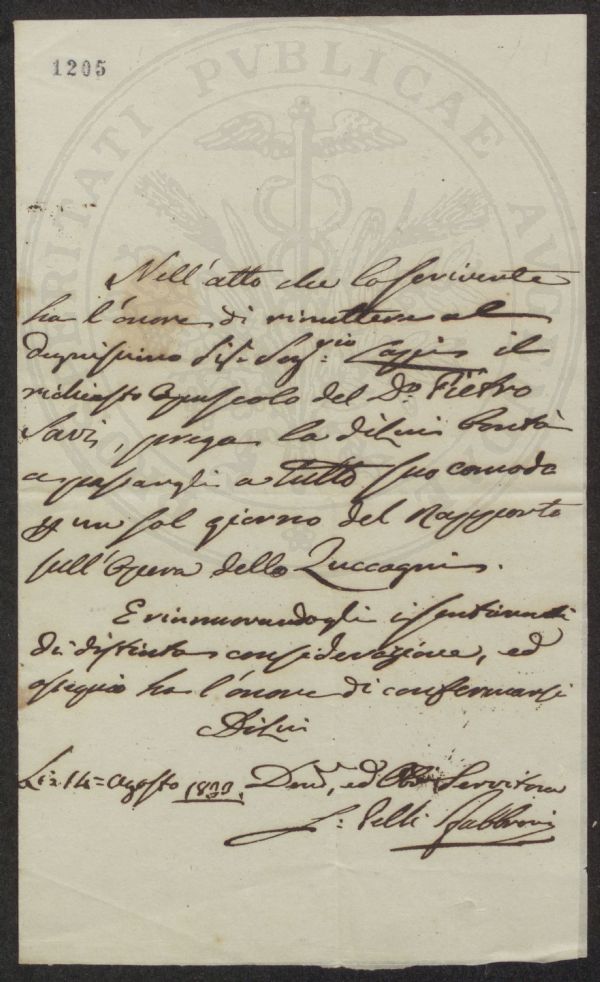 1205
PVBLICAE
Nell'atto che lo scrivente
ha l'onore di rimettere al
degnissimo Sig. Seg.rio il
richiesto Opuscolo del D.r Pietro
Savi, prega la di Lui bontà
a passargli a tutto suo comodo
un sol giorno del Rapporto
sull'Opera dello Zuccagni.
E rinnuovandogli i sentimenti
di distinta considerazione, ed
ossequio ha l'onore di confermarsi
Di Lui
Li 14 = Agosto Dev. ed Servitore
Pelli Fabbroni